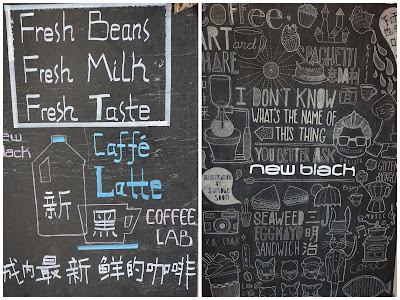 Fresh Beans
Fresh Milk
Fresh Taste
new
black
Caffé
Latte
新
黑
COFFEE
LAB
城内最新鲜的咖啡
Coffee,
ART and
SHARE
SPAGHETTI
意 利
面
I DON'T KNOW
WHAT'S THE NAME OF
THIS THING
YOU BETTER ASK
new black
SEAWEED
EGGMAYO
SANDWICH
三
明
治
MUSIC